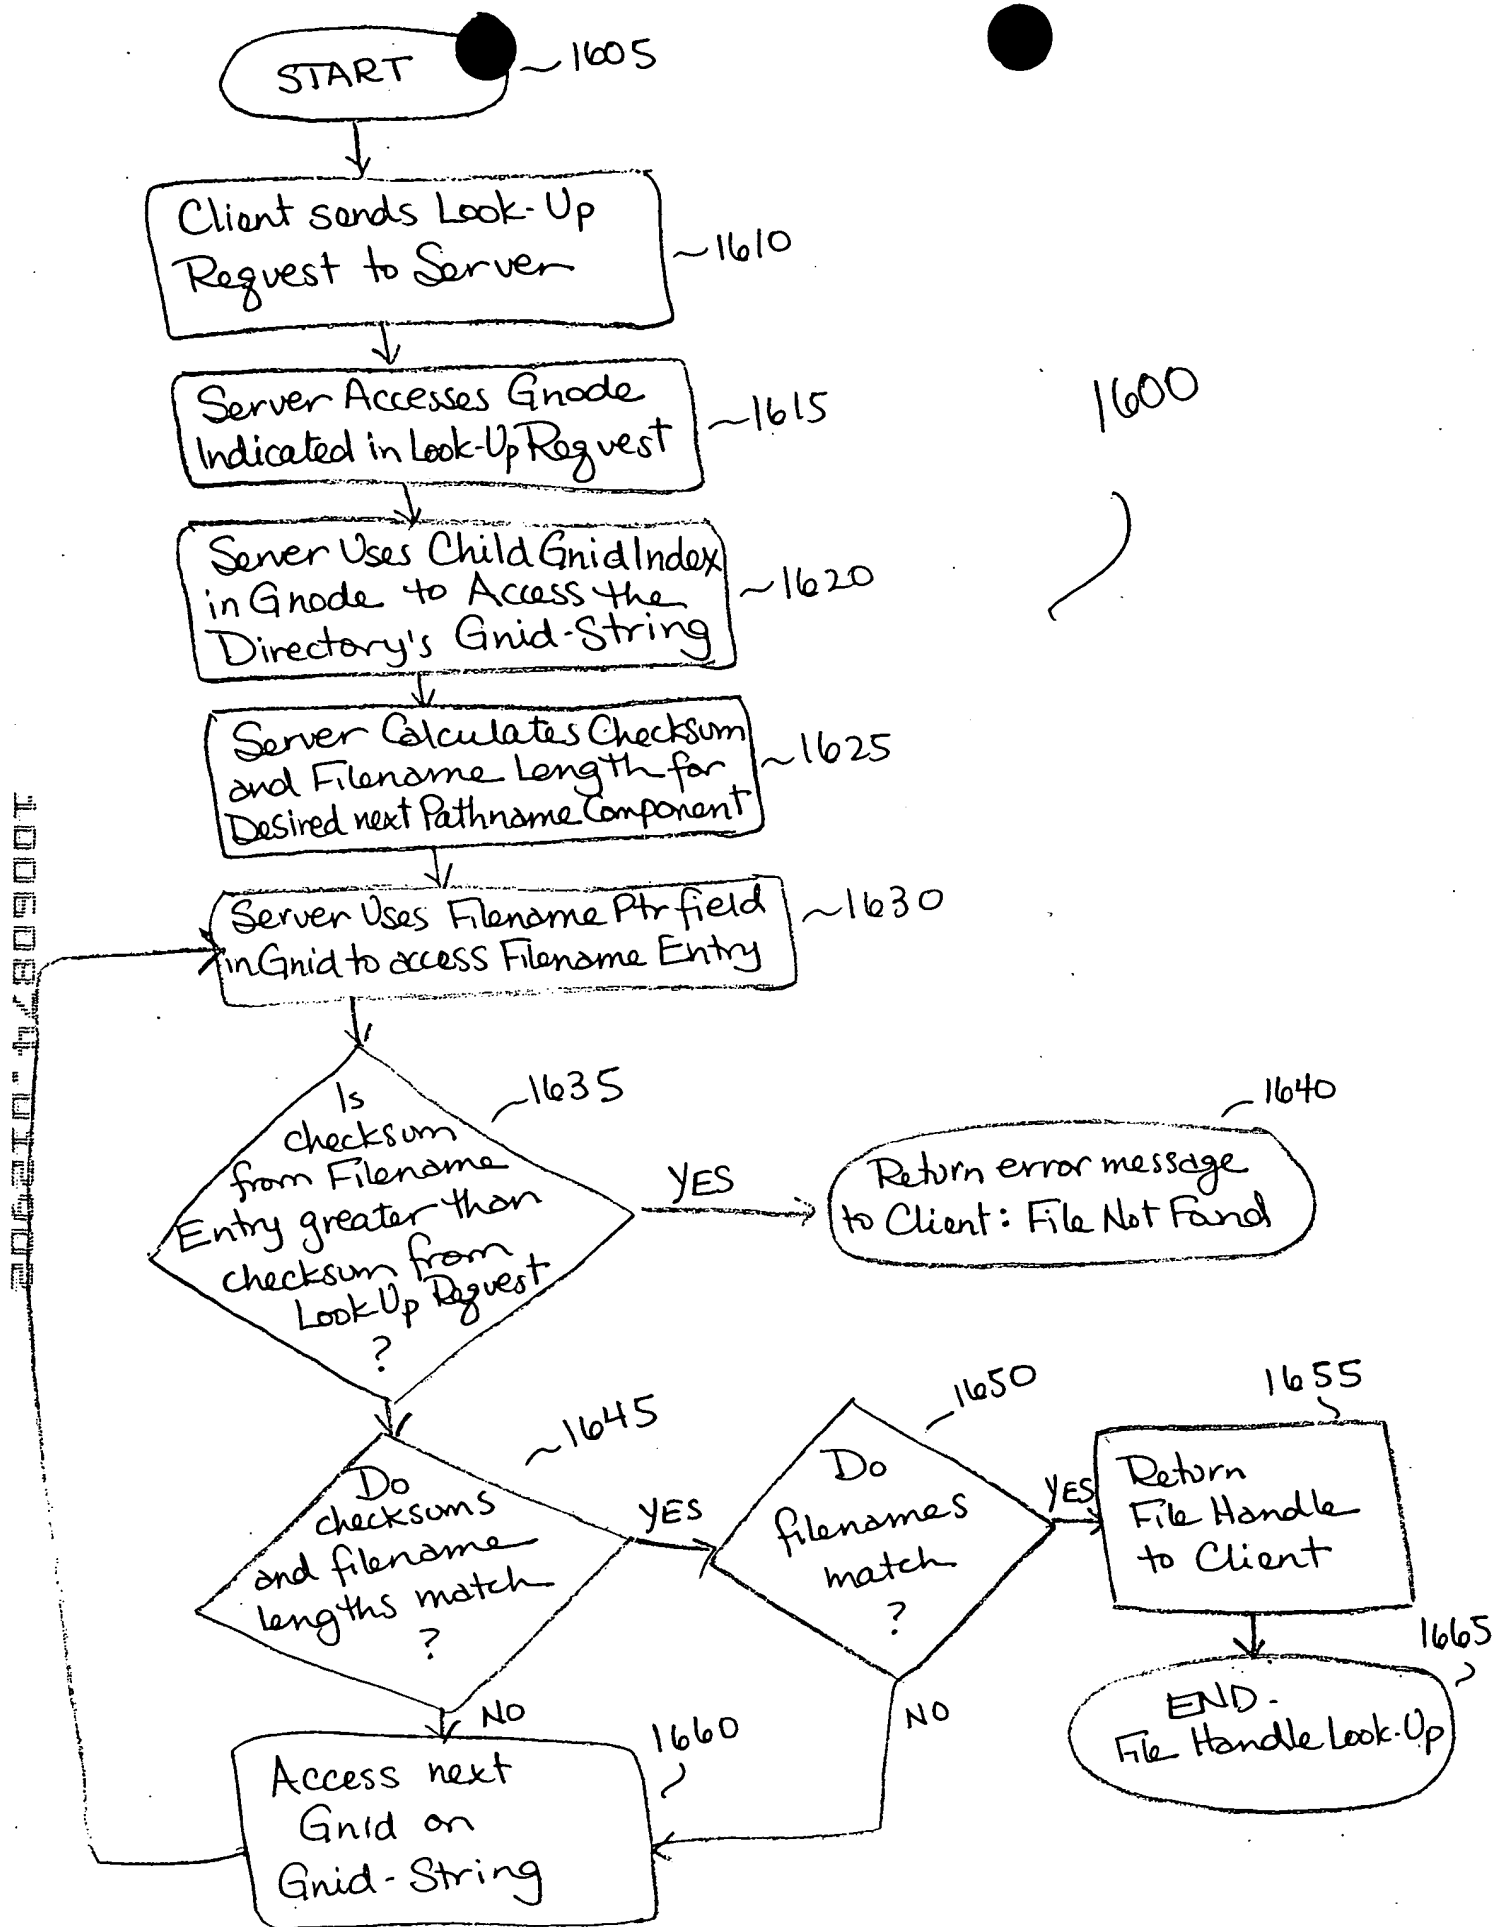 START
1605
Client sends Look-Up
Request to Server
1610
Server Accesses Gnode
Indicated in Look-Up Request
1615
1600
Server Uses Child Gnid Index
in Gnode to Access the
Directory's Gnid-String
1620
Server Calculates Checksum
and Filename Length for
Desired next Pathname Component
1625
Server Uses Filename Ptr field
in Gnid to access Filename Entry
1630
Is
checksum
from Filename
Entry greater than
checksum from
Look-Up Request
?
1635
YES
1640
Return error message
to Client: File Not Found
Do
checksums
and filename
lengths match
?
1645
YES
Do
filenames
match
?
1650
YES
1655
Return
File Handle
to Client
1665
END -
File Handle Look-Up
NO
NO
1660
Access next
Gnid on
Gnid-String